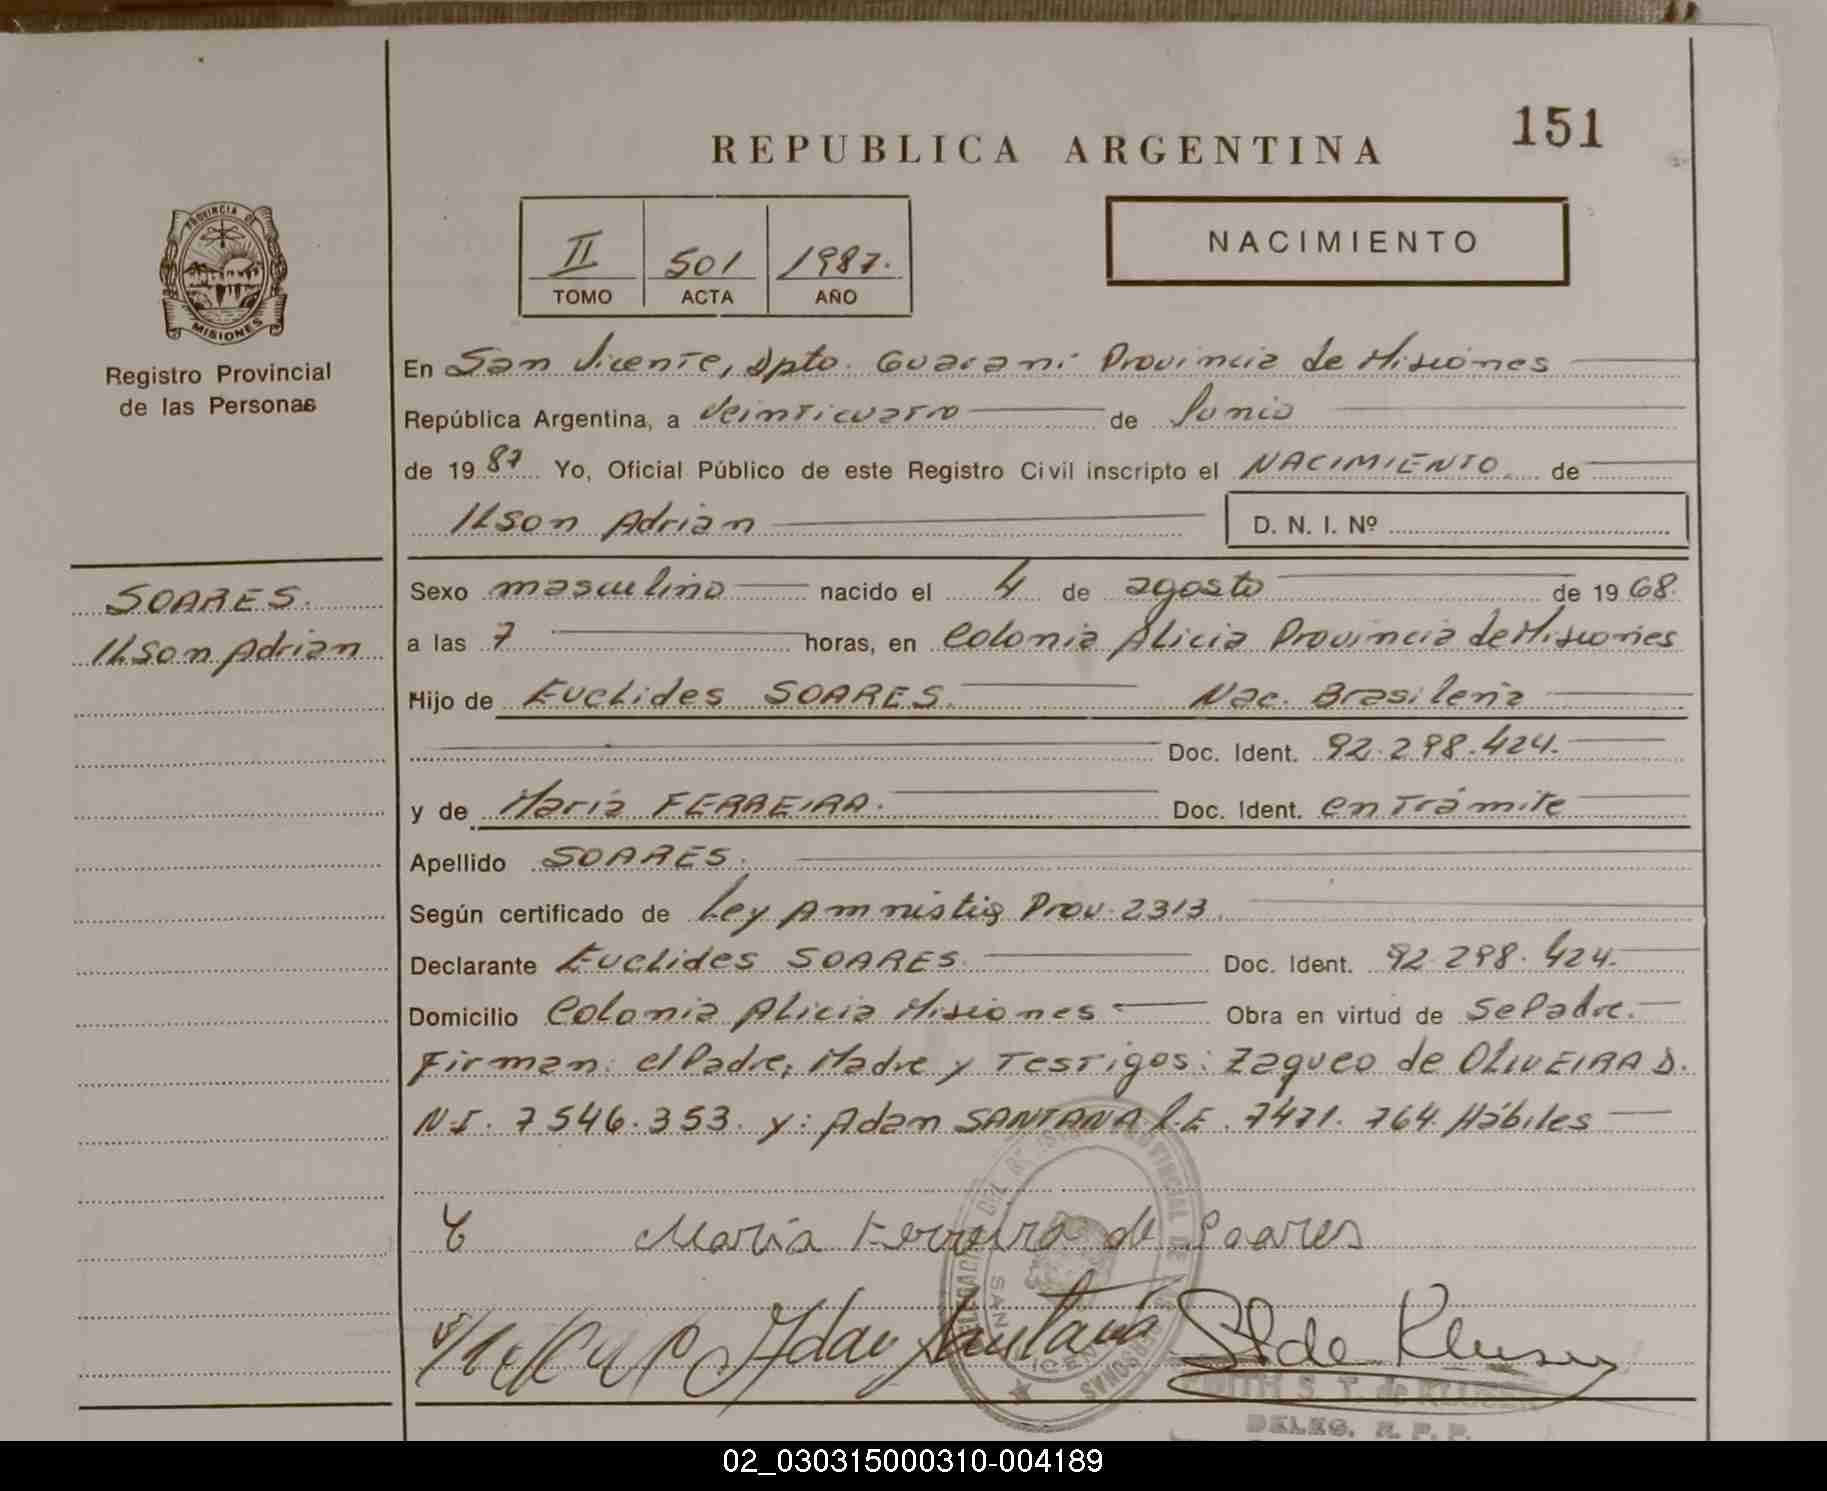 151
REPUBLICA ARGENTINA
PROVINCIA DE
MISIONES
Registro Provincial
de las Personas
NACIMIENTO
II 501 1987.
TOMO ACTA AÑO
En San Vicente, Dpto. Guaraní Provincia de Misiones
República Argentina, a Veinticuatro de Junio
de 19 87 Yo, Oficial Público de este Registro Civil inscripto el NACIMIENTO de
Ilson Adrian D. N. I. Nº
SOARES.
Ilson Adrian
Sexo masculino nacido el 4 de agosto de 19 68.
a las 7 horas, en Colonia Alicia Provincia de Misiones
Hijo de Euclides SOARES. Nac. Brasileña
Doc. Ident. 92.298.424.
y de Maria FERREIRA. Doc. Ident. en Trámite
Apellido SOARES.
Según certificado de Ley Amnistia Prov. 2313.
Declarante Euclides SOARES. Doc. Ident. 92.298.424.
Domicilio Colonia Alicia Misiones Obra en virtud de Se Padre.
Firman: el Padre, Madre y Testigos: Zaqueo de OLIVEIRA D.
N.I. 7.546.353. y: Adan SANTANA L.E. 7471.764. Hábiles
María Ferreira de Soares
Adan Santana
DELEG. R. P. P.
02_030315000310-004189